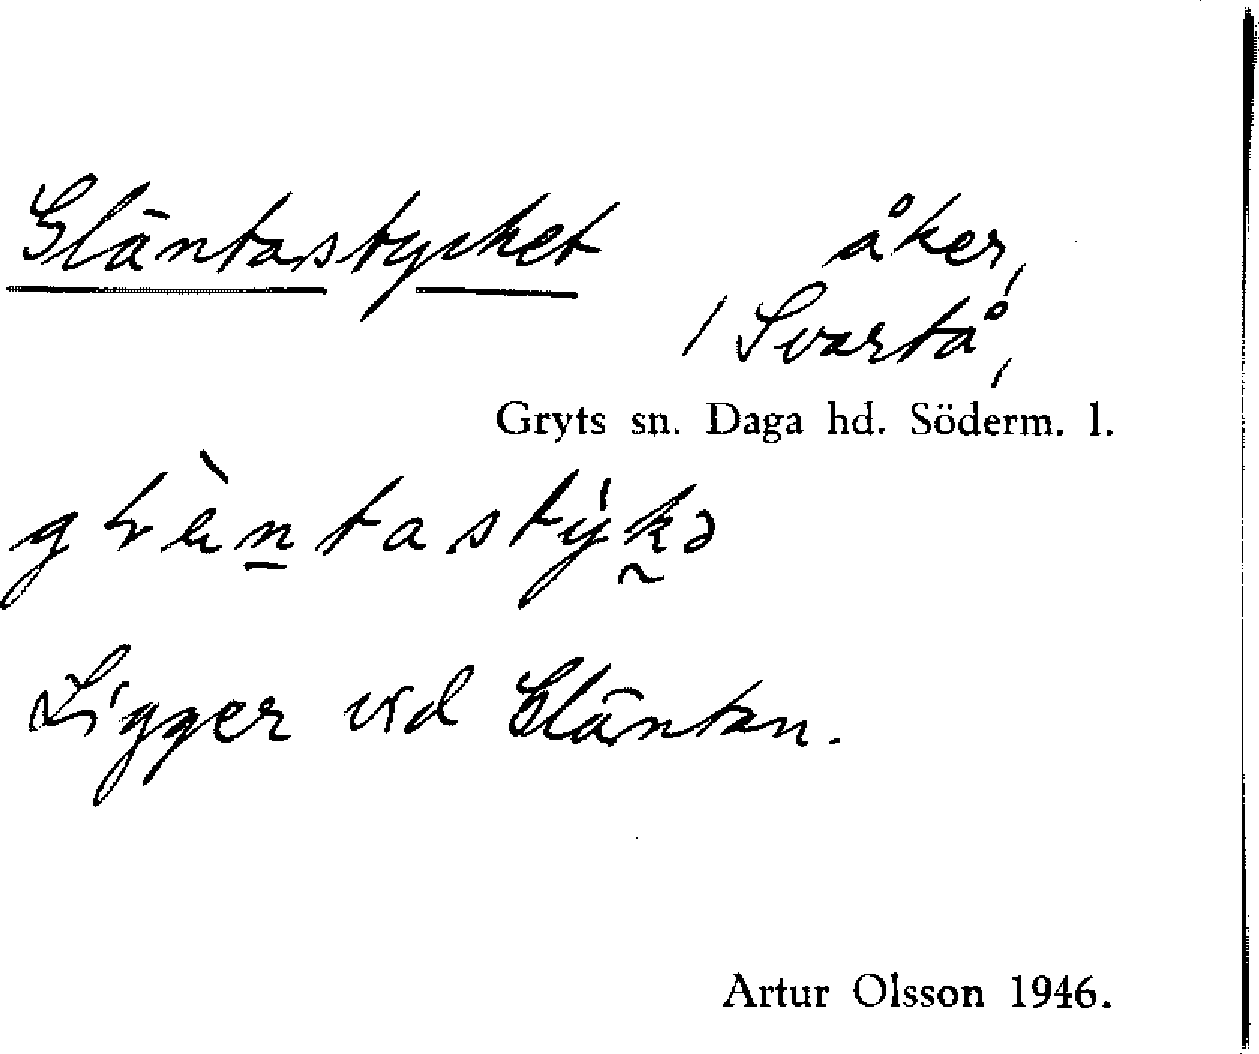 Gläntastycket åker,
/ Svartå,
Gryts sn. Daga hd. Söderm. l.
Ligger vid Gläntan.
Artur Olsson 1946.